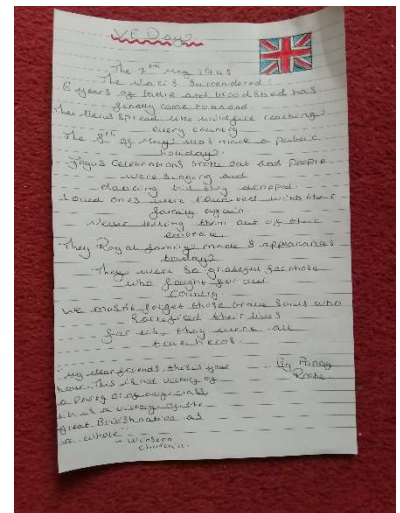 V.E Day
The 7th May 1945
The Nazis Surrendered
6 years of battle and bloodshed has
finally come to an end
The News spread like wildfire reaching
every country
The 8th of May was made a Public
holiday
Joyus Celebrations broke out and People
were singing and
dancing till they dropped.
Loved ones were reunited with their
family again
Never letting them out of their
embrace
They Royal family made 8 appearances
today
They were so grateful for those
who fought for our
Country
we mustn't forget those brave Souls who
Sacrificed their lives
for us, they were all
true heros.
By Poppy
my dear friends, this is your
hour. This is not victory of
a Party or of any class
it is a victory of the
great British nation as
a whole
- Winston
Churchill